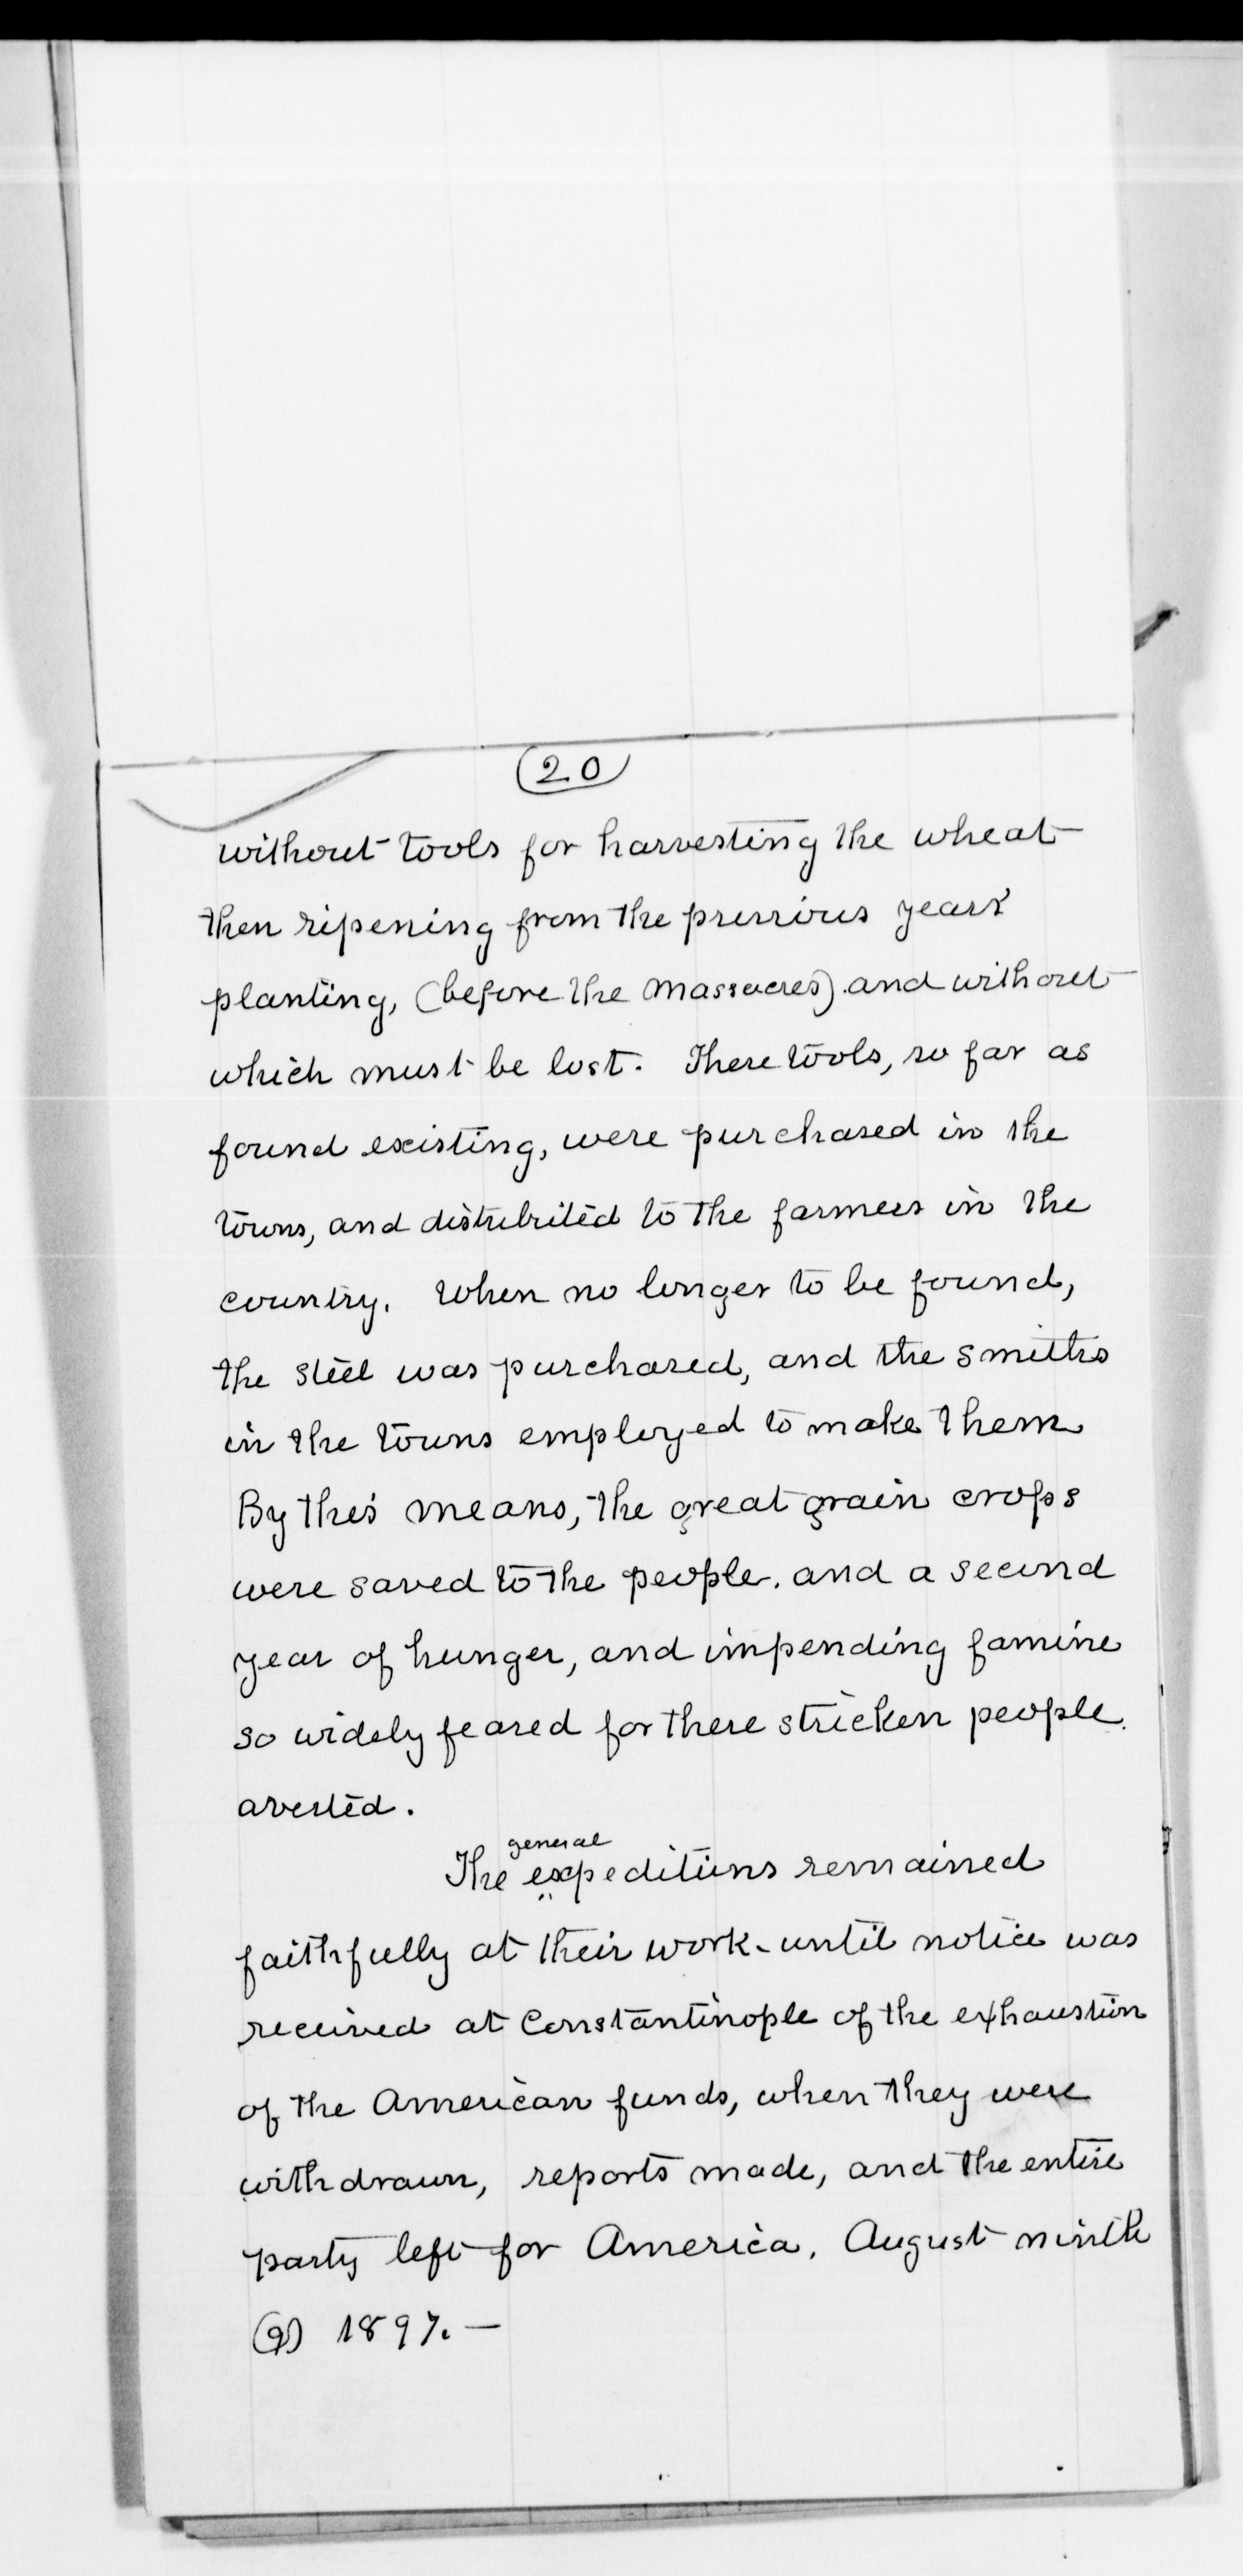 20
without tools for harvesting the wheat
then ripening from the previous years'
planting, (before the massacres) and without
which must be lost. These tools, so far as
found existing, were purchased in the
towns, and distributed to the farmers in the
country. When no longer to be found,
the steel was purchased, and the smiths
in the towns employed to make them
By this means, the great grain crops
were saved to the people. and a second
year of hunger, and impending famine
so widely feared for these stricken people.
averted.
general
The expeditions remained
faithfully at their work - until notice was
received at Constantinople of the exhaustion
of the American funds, when they were
withdrawn, reports made, and the entire
party left for America, August ninth
(9) 1897. —